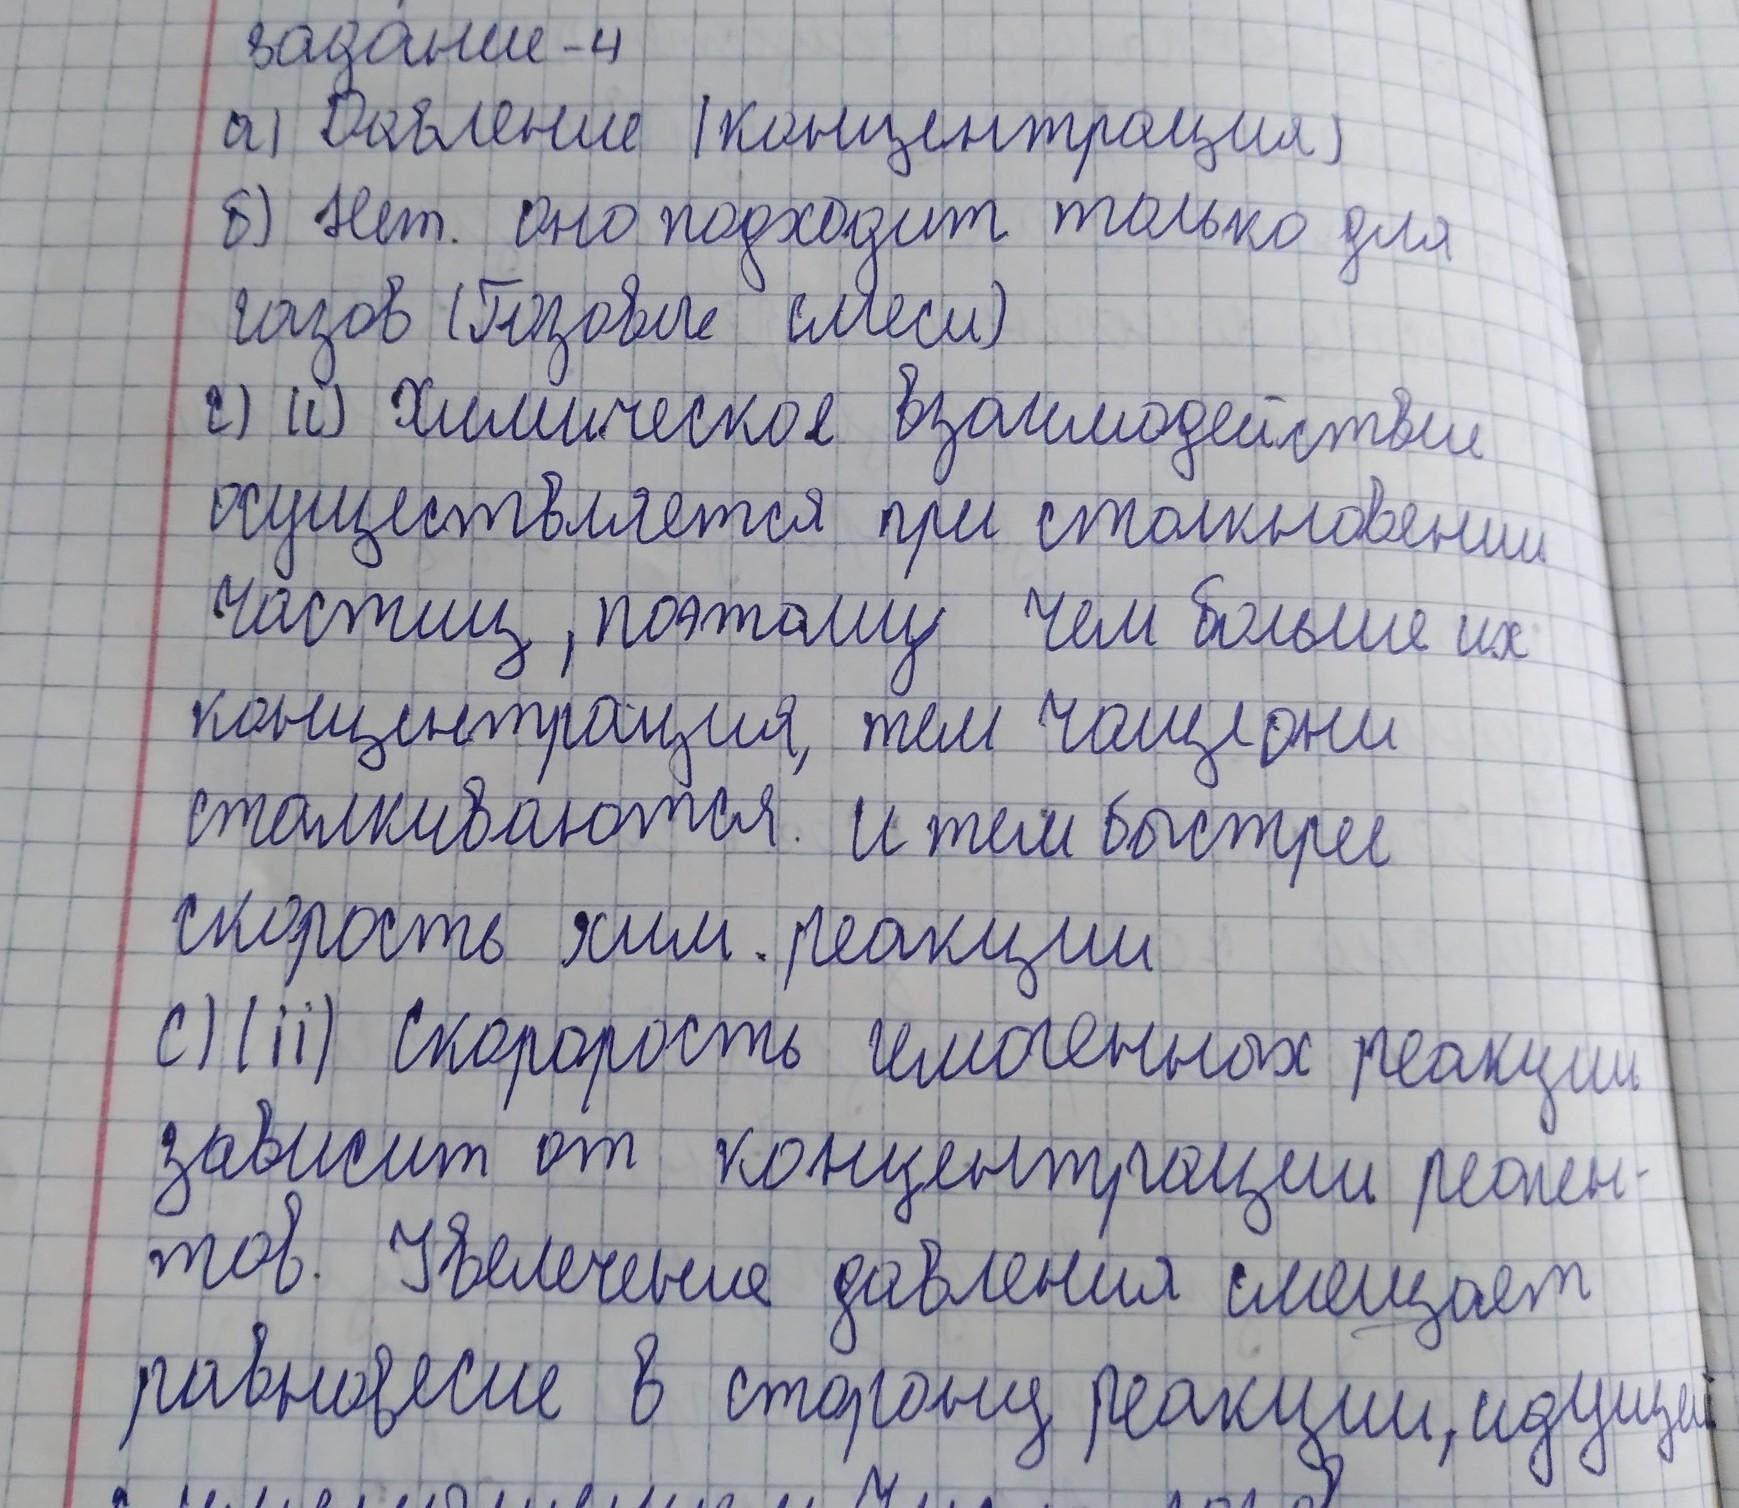 задание-4
а) Давление (концентрация)
б) Нет. оно подходит только для
газов (Газовые смеси)
г) (i) Химическое взаимодействие
осуществляется при столкновении
частиц, поэтому чем больше их
концентрация, тем чаще они
сталкиваются. и тем быстрее
скорость хим. реакции
с) (ii) Скорорость гемогенных реакции
зависит от концентрации реаген-
тов. Увеличение давления смещает
равновесие в сторону реакции, идущей